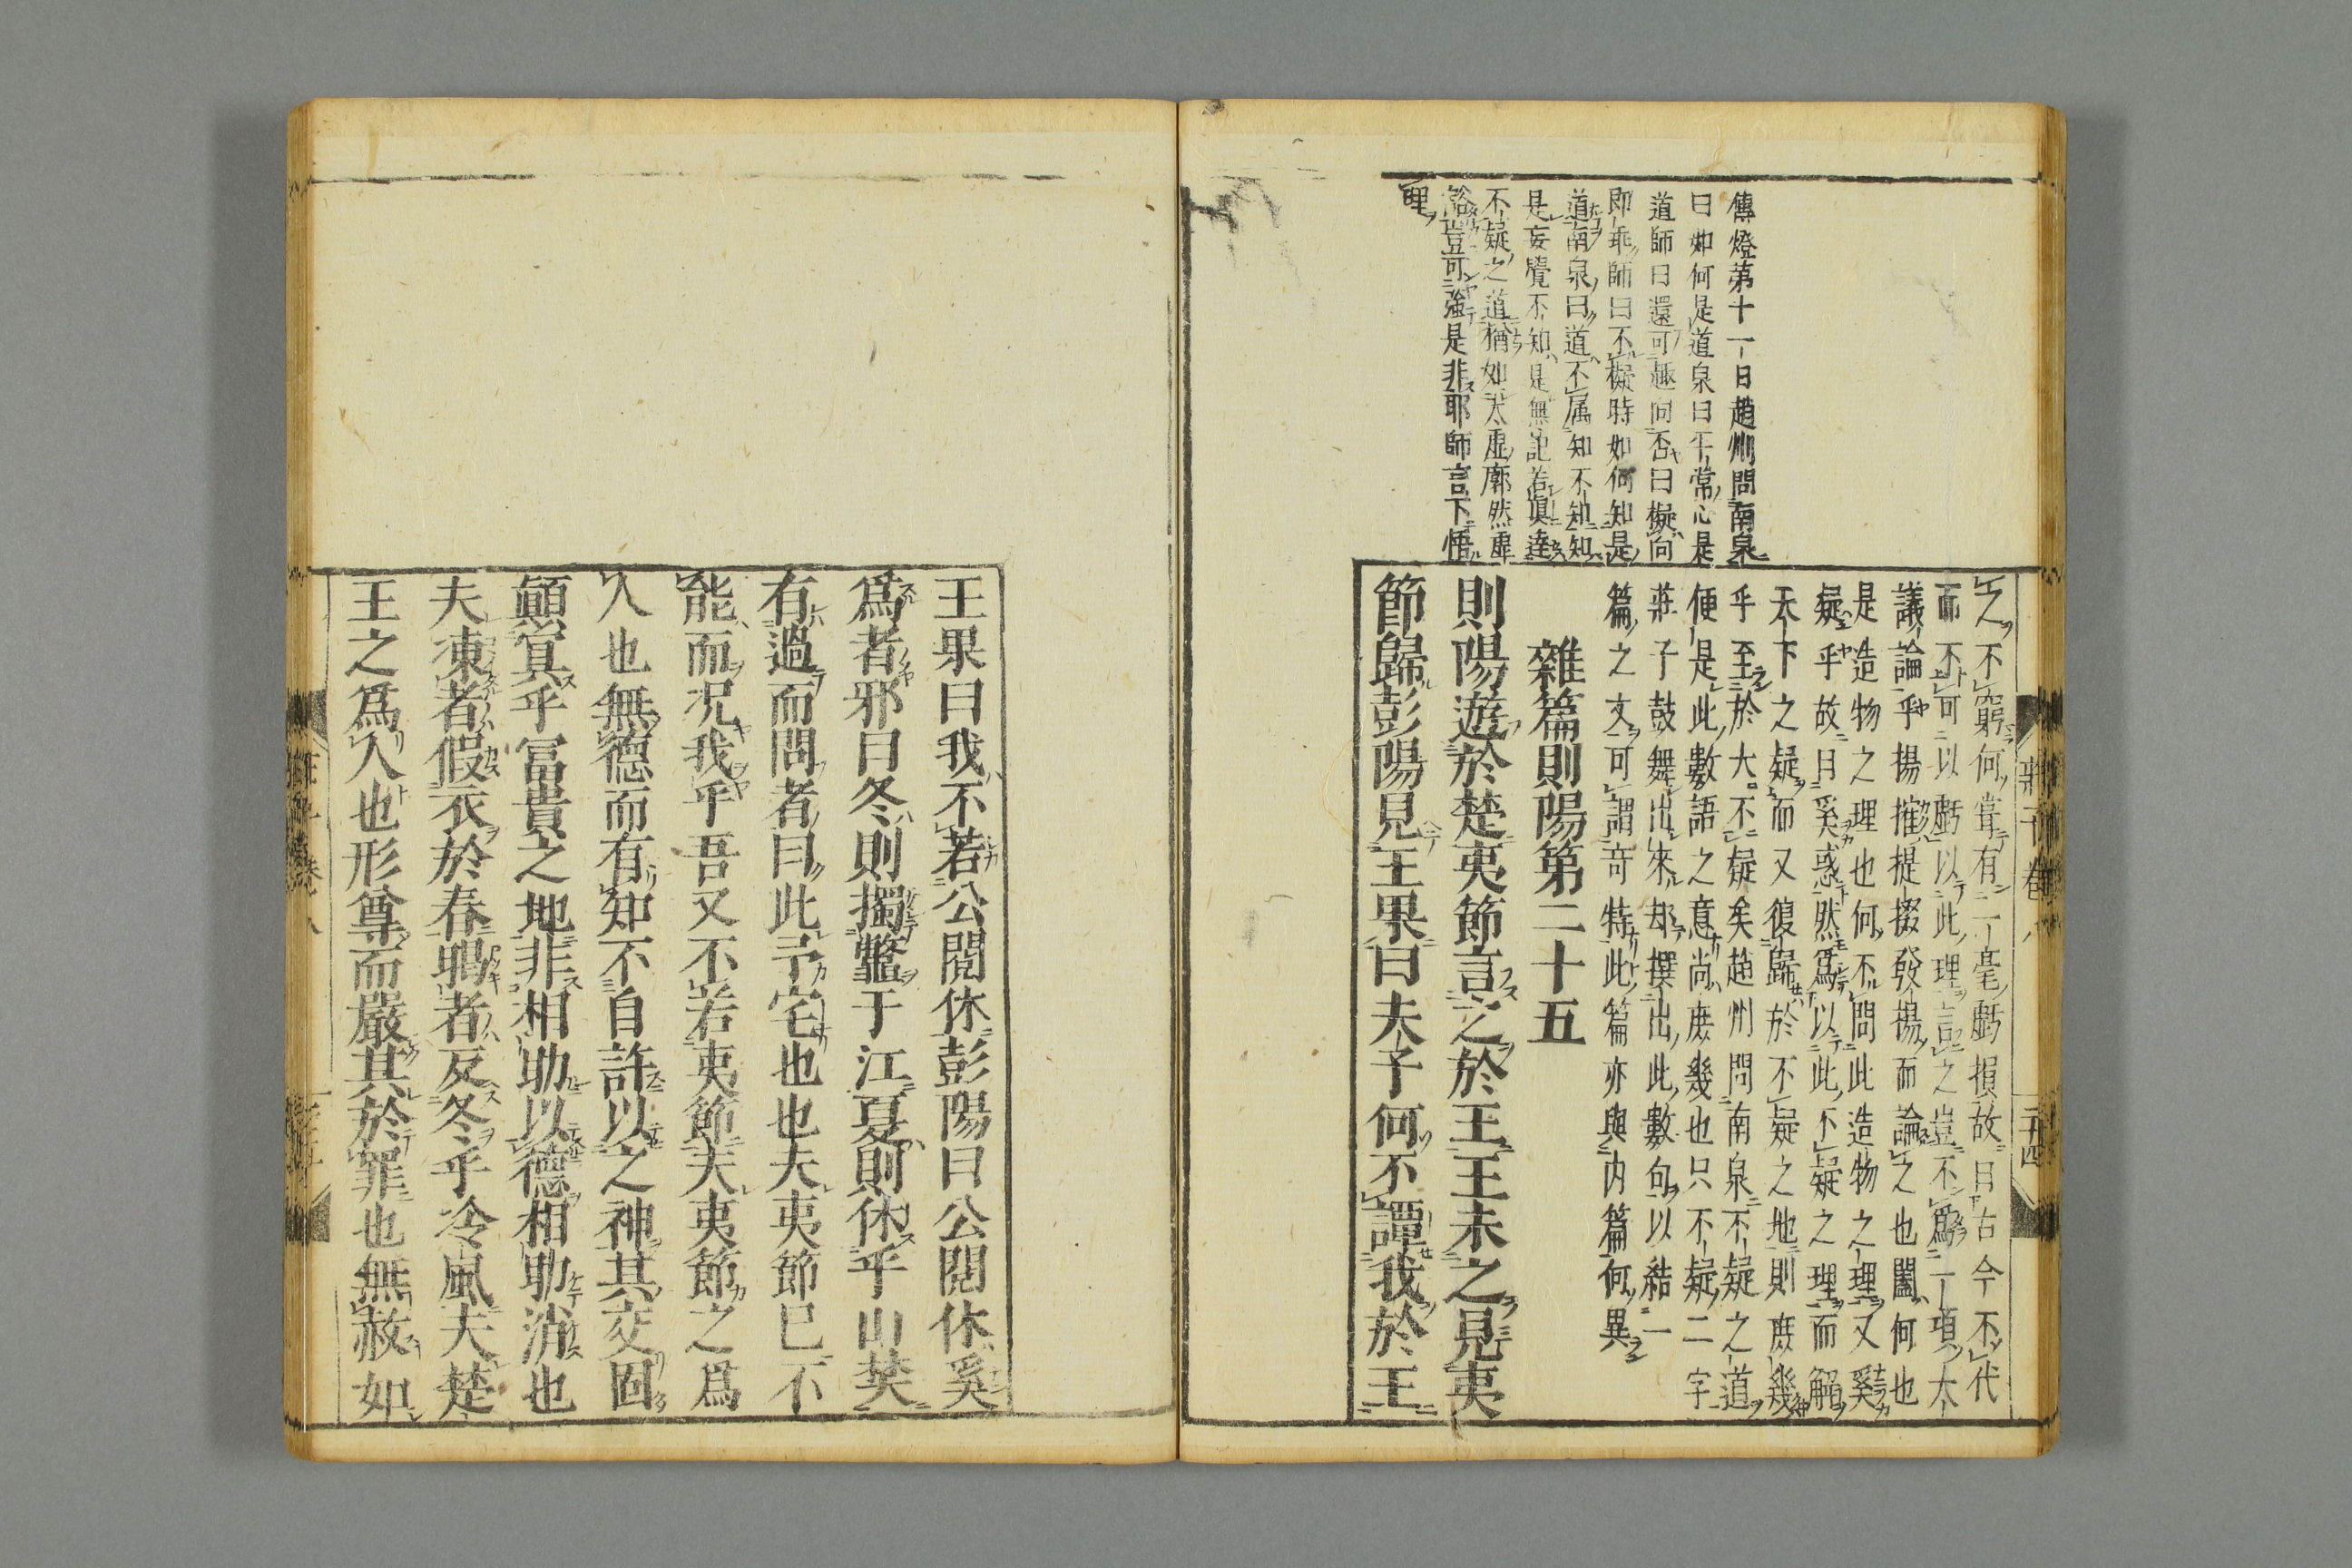 傳燈第十一曰趙州問南泉
曰如何是道泉曰平常心是
道師曰還可趣向否曰擬向
即乖師曰不擬時如何知是
道南泉曰道不属知不知知
是妄覺不知是無記若眞達
不疑之道猶如太虛廓然虛
豁豈可強是非耶師言下悟
理
之不窮何甞有一毫虧損故曰古今不代
而不可以虧以此理言之豈不爲一項大
議論乎揚搉提掇發揚而論之也闔何也
是造物之理也何不問此造物之理又奚
疑乎故曰奚惑然爲以此不疑之理而解
天下之疑而又復歸於不疑之地則庶幾
乎至於大不疑矣趙州問南泉不疑之道
便是此數語之意尚庶幾也只不疑二字
莊子鼓舞出來却撰出此數句以結一
篇之文可謂奇特此篇亦與内篇何異
雜篇則陽第二十五
則陽遊於楚夷節言之於王王未之見夷
節歸彭陽見王果曰夫子何不譚我於王
王果曰我不若公閱休彭陽曰公閱休奚
爲者邪曰冬則擉鼈于江夏則休乎山樊
有過而問者曰此予宅也也夫夷節已不
能而况我乎吾又不若夷節夫夷節之爲
人也無德而有知不自許以之神其交固
顚冥乎富貴之地非相助以德相助消也
夫凍者假衣於春暍者反冬乎冷風夫楚
王之爲人也形尊而嚴其於罪也無赦如
莊子 卷八